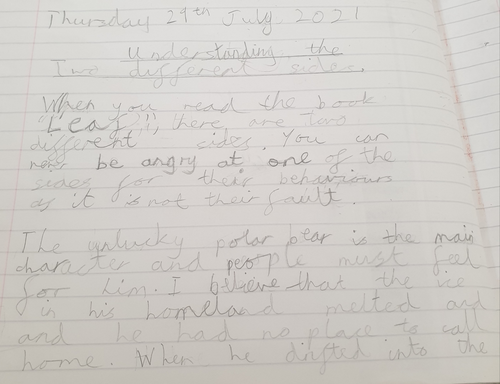 Thursday 29th July 2021
Understanding the
Two different sides.
When you read the book
"Leaf", there are two
different sides. You can
not be angry at one of the
sides for their behaviours
as it is not their fault.
The unlucky polar bear is the main
character and people must feel
for him. I believe that the ice
in his homeland melted and
and he had no place to call
home. When he drifted into the